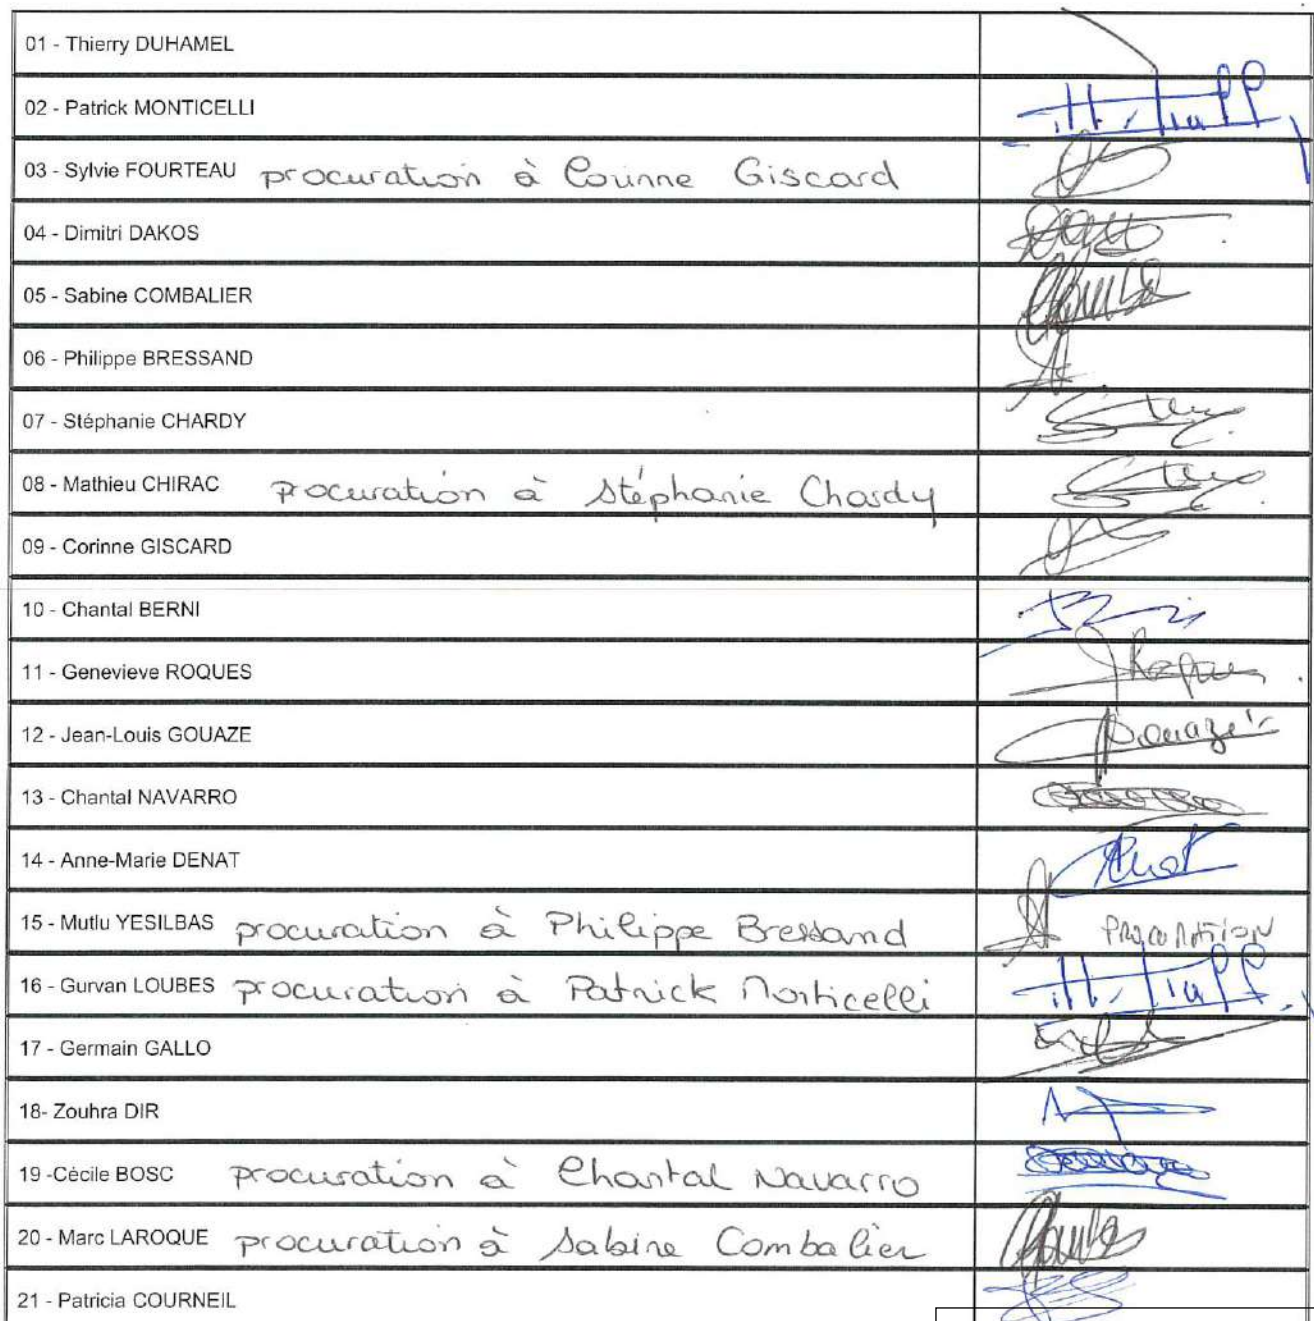 01 - Thierry DUHAMEL
02 - Patrick MONTICELLI
03 - Sylvie FOURTEAU procuration à Corinne Giscard
04 - Dimitri DAKOS
05 - Sabine COMBALIER
06 - Philippe BRESSAND
07 - Stéphanie CHARDY
08 - Mathieu CHIRAC procuration à Stéphanie Chardy
09 - Corinne GISCARD
10 - Chantal BERNI
11 - Genevieve ROQUES
12 - Jean-Louis GOUAZE
13 - Chantal NAVARRO
14 - Anne-Marie DENAT
15 - Mutlu YESILBAS procuration à Philippe Bressand PROCURATION
16 - Gurvan LOUBES procuration à Patrick Monticelli
17 - Germain GALLO
18- Zouhra DIR
19 -Cécile BOSC procuration à Chantal Navarro
20 - Marc LAROQUE procuration à Sabine Combalier
21 - Patricia COURNEIL